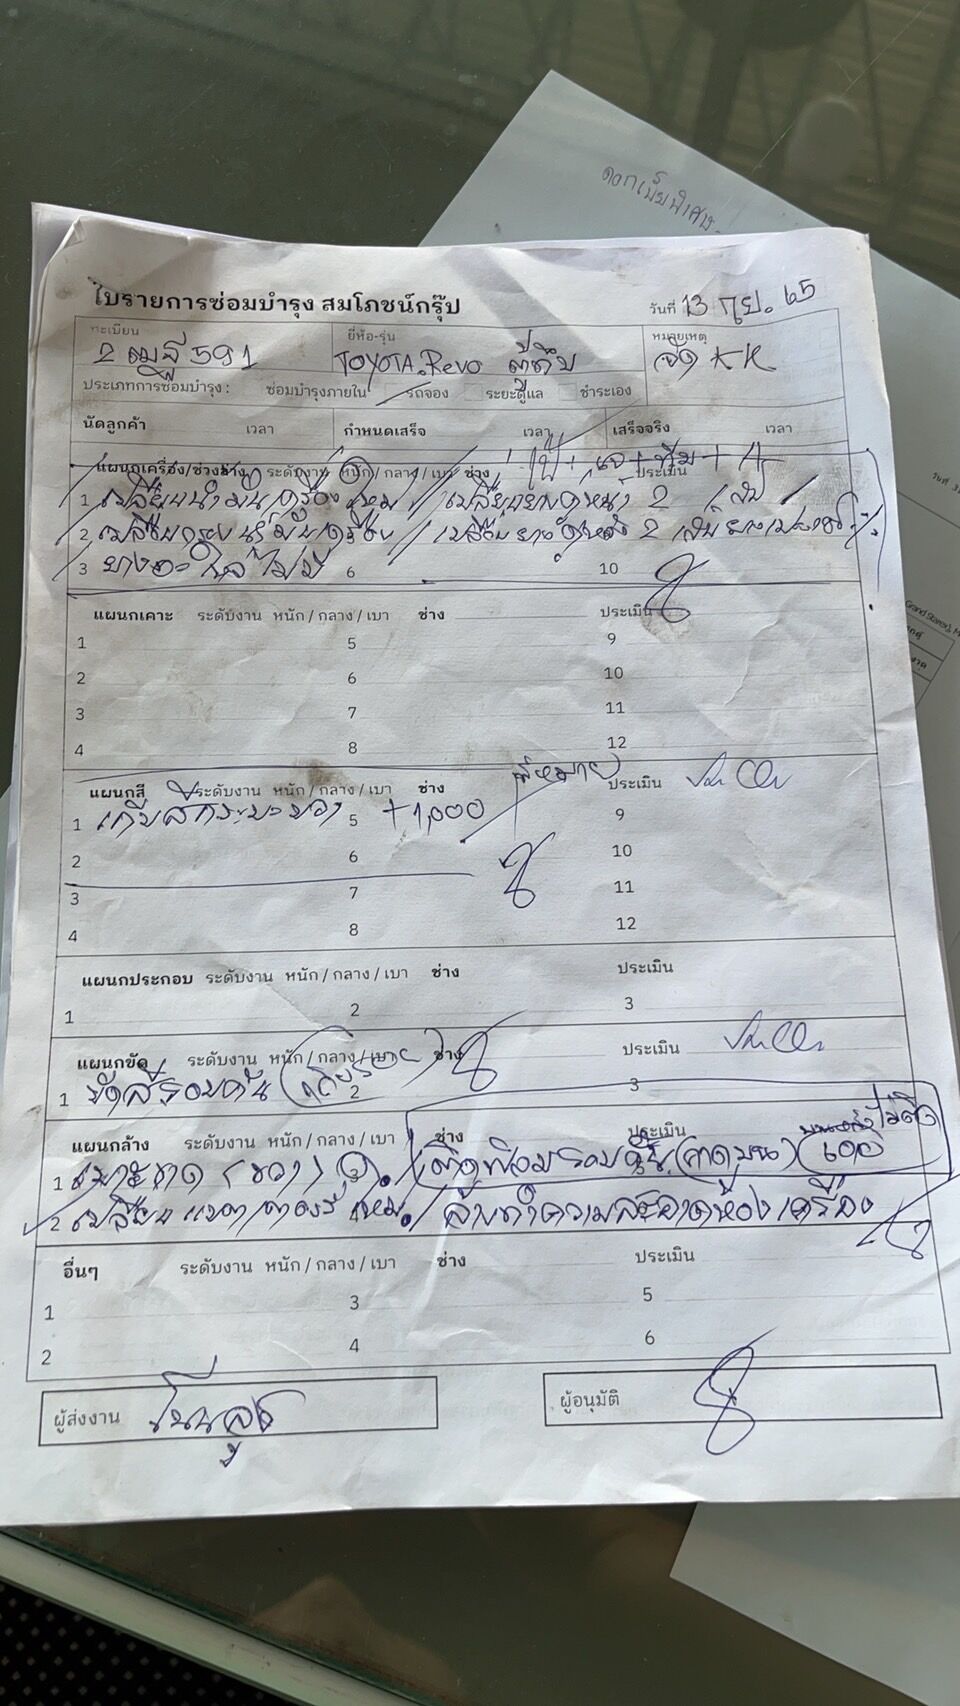 ดอกเบี้ยพิเศษ
ใบรายการซ่อมบำรุง สมโภชน์กรุ๊ป
วันที่ 13 กย. 65
ทะเบียน ยี่ห้อ-รุ่น หมายเหตุ
2 ฒฐ 591 TOYOTA Revo ตู้ทึบ จัด KK
ประเภทการซ่อมบำรุง : ซ่อมบำรุงภายใน รถจอง ระยะดูแล ชำระเอง
นัดลูกค้า เวลา กำหนดเสร็จ เวลา เสร็จจริง เวลา
แผนกเครื่อง/ช่วงล่าง ระดับงาน หนัก / กลาง / เบา ช่าง ประเมิน
1 เปลี่ยนน้ำมันเครื่องใหม่ เปลี่ยนยางคู่หน้า 2 เส้น
2 เปลี่ยนกรองน้ำมันเครื่อง เปลี่ยนยางคู่หลัง 2 เส้น
3 ยางอะไหล่ไม่มี 6 10
แผนกเคาะ ระดับงาน หนัก / กลาง / เบา ช่าง ประเมิน
1 5 9
2 6 10
3 7 11
4 8 12
แผนกสี ระดับงาน หนัก / กลาง / เบา ช่าง ประเมิน
1 เก็บสีกระบะขวา 5 +1,000 9
2 6 10
3 7 11
4 8 12
แผนกประกอบ ระดับงาน หนัก / กลาง / เบา ช่าง ประเมิน
1 2 3
แผนกขัด ระดับงาน หนัก / กลาง / เบา ช่าง ประเมิน
1 ขัดสีรอบคัน 2 3
แผนกล้าง ระดับงาน หนัก / กลาง / เบา ช่าง ประเมิน
1 เบาะขาด (ขวา) ติดฟิล์มรอบคัน (คาดบน)
2 เปลี่ยนแบตเตอรี่ใหม่ ล้างทำความสะอาดห้องเครื่อง
อื่นๆ ระดับงาน หนัก / กลาง / เบา ช่าง ประเมิน
1 3 5
2 4 6
ผู้ส่งงาน ผู้อนุมัติ